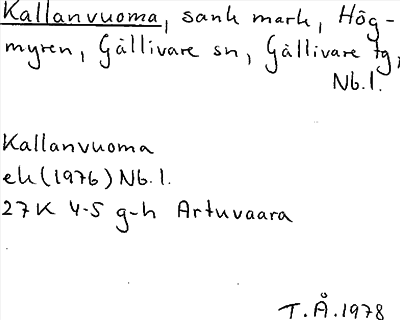 Kallanvuoma, sank mark, Hög-
myren, Gällivare sn, Gällivare tg,
Nb.l.
Kallanvuoma
ek (1976) Nb.l.
27K 4-5 g-h Artuvaara
T.Å.1978